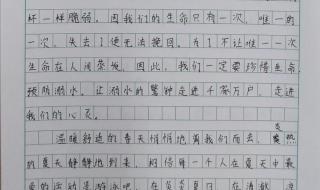 杯一样脆弱。因我们的生命只有一次，唯一的
一次，失去了便无法挽回，为了不让唯一一次
生命在人间荼毁，因此，我们一定要珍惜生命，
预防溺水，让溺水的警钟走进千家万户，走进
我们的心灵。
温暖舒适的春天悄悄地离我们而去，炎热
的夏天静静地到来，相信每一个人在夏天中最
爱的运动是游泳吧，在炎炎夏日，在清澈